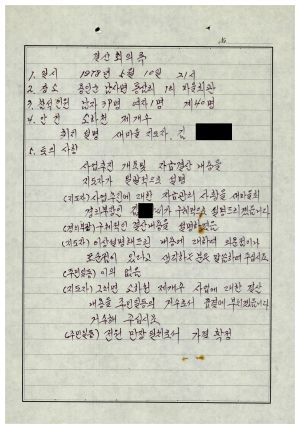 No.
결산 회의록
1. 일시 1978년 5월 10일 21시
2. 장소 용인군 남사면 1리 마을회관
3. 참석인원 남자 39명 여자 1명 계 40명
4. 안건 소하천 제개수
취리 설명 새마을 지도자. 김
5. 토의 사항
사업추진 개요및 자금결산 내용을
지도자가 일괄적으로 설명
(지도자) 사업추진에 대한 자금관의 사항을 새마을회
경리부장인 김 씨가 구체적으로 설명드리겠습니다
(경리부장) 구체적인 결산내용을 설명하였음
(지도자) 이상설명해드린 내용에 대하여 의문점이나
모순점이 있다고 생각하는 분은 말씀하여 주십시요
(주민일동) 이의 없음
(지도자) 그러면 소하천 제개수 사업에 대한 결산
내용을 주민일동의 거수로서 표결에 부치겠습니다
거수해 주십시요
(주민일동) 전원 만장일치로서 가결 확정